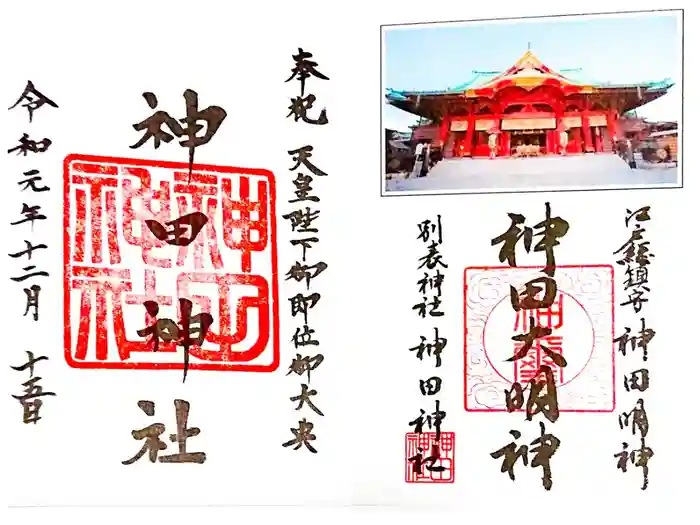 江戸総鎮守 神田明神
神田大明神
別表神社 神田神社
神田神社
奉祝 天皇陛下御即位御大典
神田神社
神田神社
令和元年十二月 十五日